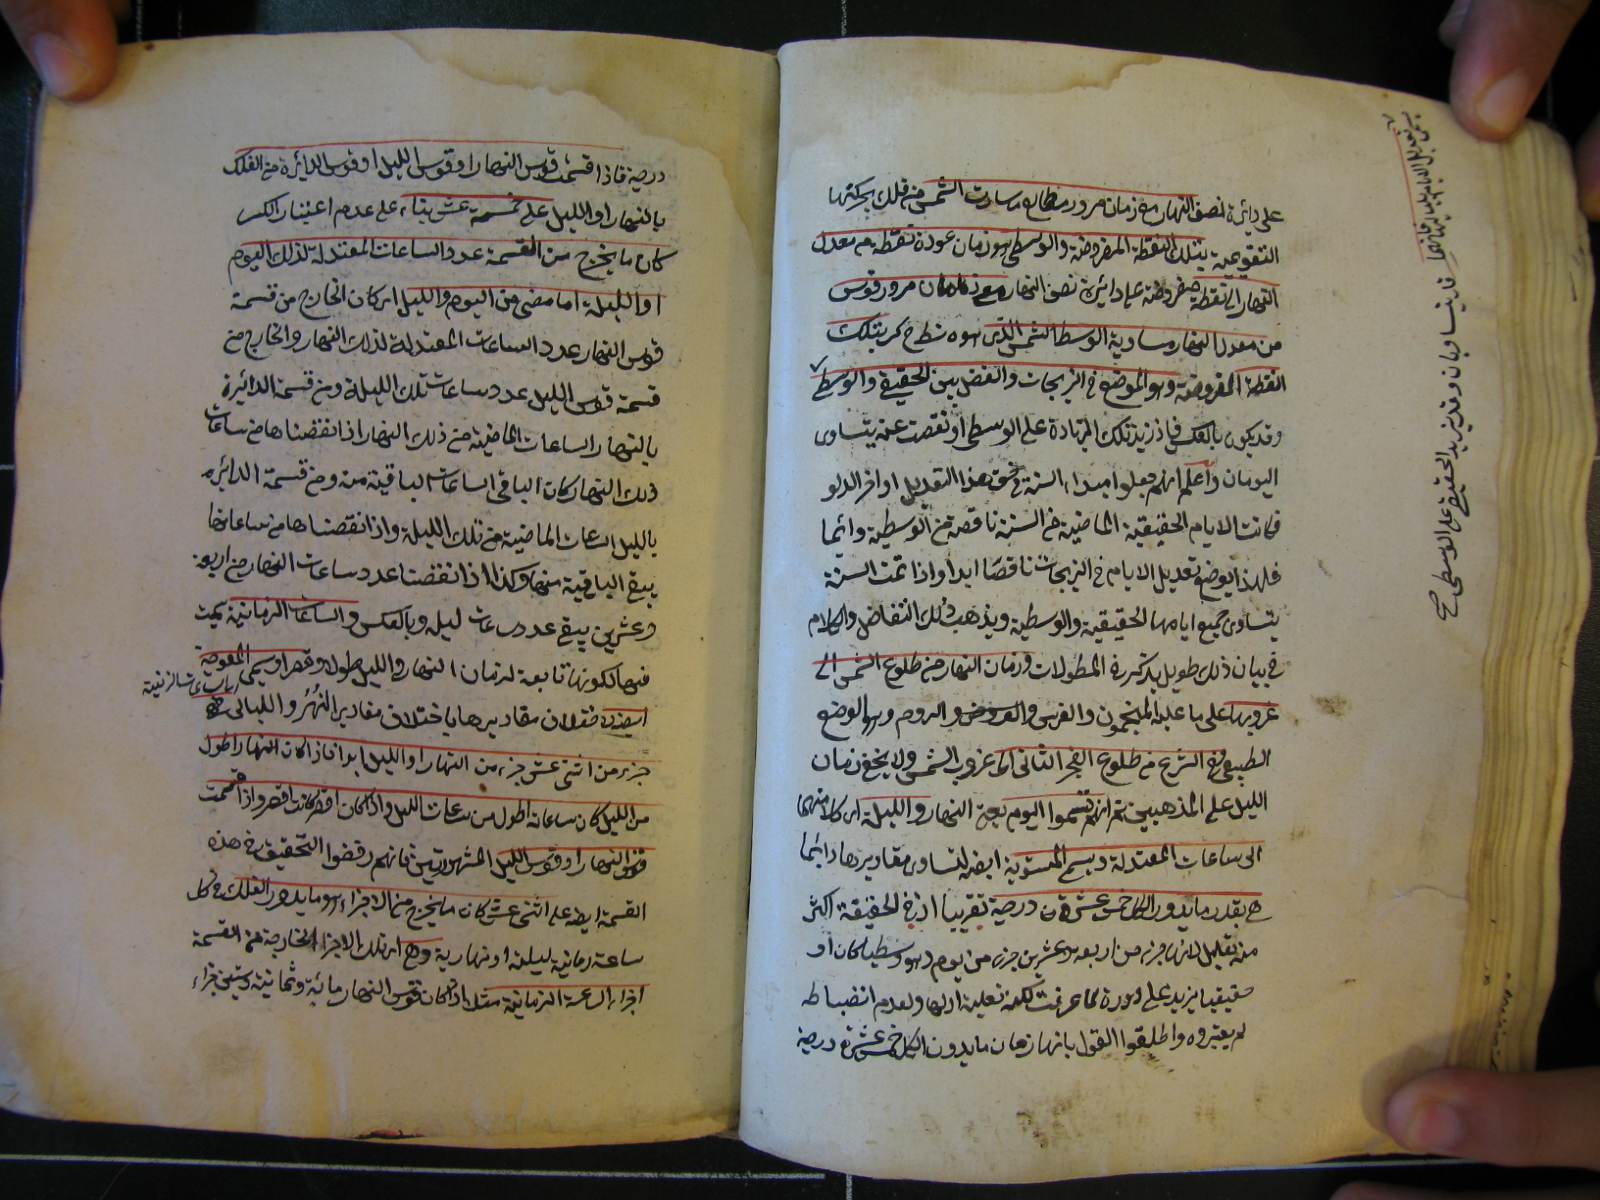 على دائرة نصف النهار مع زمان مرور مطالع ما سارت الشمس من فلك بحركتها
التقويمية بتلك النقطة المفروضة والوسطى هو زمان عودة نقطة من معدل
النهار الى نقطة مفروضة على دائرة نصف النهار مع زمان مرور قوس
من معدل النهار مساوية الوسط الشمس الذى هو بتلك
النقطة المفروضة وهو الموضع فى الزيجات والفضل بين الحقيقى والوسطى
وقد يكون بالعكس فاذا زيد تلك الزيادة على الوسطى او نقصت عنه يتساوى
اليومان واعلم انهم جعلوا مبداء السنة فى حق هذا التعديل اواخر الدلو
فكانت الايام الحقيقية الماضية من السنة ناقصة من الوسطية دائما
فلهذا يوضع تعديل الايام فى الزيجات ناقصا ابدا واذا تمت السنة
يتساوى جميع ايامها الحقيقية والوسطية ويذهب ذلك التفاضل والكلام
فى بيان ذلك طويل يذكر فى المطولات وزمان النهار من طلوع الشمس الى
غروبها على ما عليه المنجمون والفرس والروم وهو الوضع
الطبيعى وفى الشرع من طلوع الفجر الثانى الى غروب الشمس ولا يخفى زمان
الليل على المذهبين ثم انهم قسموا اليوم بجميع النهار والليلة اى كلا منهما
الى ساعات المعتدلة ويسمى المستوية ايضا لتساوى مقاديرها دائما
هى بقدر ما يدور الفلك خمس عشرة درجة تقريبا اذ فى الحقيقة اكثر
منه بقليل لانها جزء من اربعة وعشرين جزء من يوم وهو وسطيا كان او
حقيقيا يزيد على دورة كما عرفت لكنه لقلته ولعدم انضباطه
لم يعتبروه واطلقوا القول بانها زمان ما يدور الفلك خمس عشرة درجة
تعديل الايام بلياليها
فاريتساويان وقد يزيد الحقيقى على الوسطى صح
درجة فاذا قسمت قوس النهار او قوس الليل او قوس الدائرة من الفلك
بالنهار او الليل على خمسة عشر بناء على عدم اعتبار الكسر
كان ما يخرج من القسمة عدد الساعات المعتدلة لذلك اليوم
او الليلة او ما مضى من اليوم والليل اى كان الخارج من قسمة
قوس النهار عدد الساعات المعتدلة لذلك النهار والخارج من
قسمة قوس الليل عدد ساعات تلك الليلة ومن قسمة الدائرة
بالنهار الساعات الماضية من ذلك النهار اذا نقصناها من ساعات
ذلك النهار كان الباقى الساعات الباقية منه ومن قسمة الدائرة
بالليل الساعات الماضية من تلك الليلة واذا نقصناها من ساعاتها
يبقى الباقية منها وكذا اذا نقصنا عدد ساعات النهار من اربعة
وعشرين يبقى عدد ساعات ليله وبالعكس والساعات الزمانية سميت
بها لكونها تابعة لزمان النهار والليل طولا وقصرا ويسمى المعوجة
ايضا لاختلاف مقاديرها باختلاف مقادير النهر والليالى هى
اى الساعات الزمانية
جزء من اثنى عشر جزء من النهار او الليل ابدا فاذا كان النهار اطول
من الليل كان ساعاته اطول من ساعات الليل واذا كان اقصر كانت اقصر واذا قسمت
قوس النهار او قوس الليل المشهورتين فانهم رفضوا التحقيق فى هذه
القسمة ايضا على اثنى عشر كان ما يخرج من الاجزاء هو ما يدور الفلك فى كل
ساعة زمانية ليلية او نهارية وهى اى تلك الاجزاء الخارجة من القسمة
اجزاء الساعة الزمانية مثلا اذا كان قوس النهار مائة وثمانية وستين جزاء